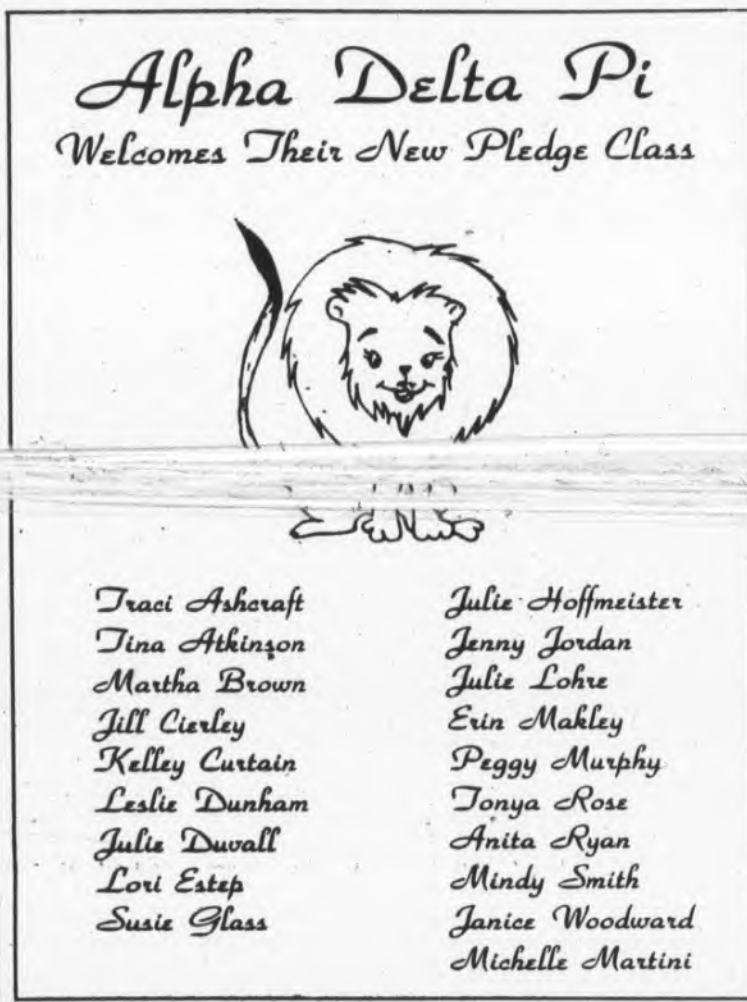 Alpha Delta Pi
Welcomes Their New Pledge Class
Traci Ashcraft
Tina Atkinson
Martha Brown
Jill Cierley
Kelley Curtain
Leslie Dunham
Julie Duvall
Lori Estep
Susie Glass
Julie Hoffmeister
Jenny Jordan
Julie Lohre
Erin Makley
Peggy Murphy
Tonya Rose
Anita Ryan
Mindy Smith
Janice Woodward
Michelle Martini